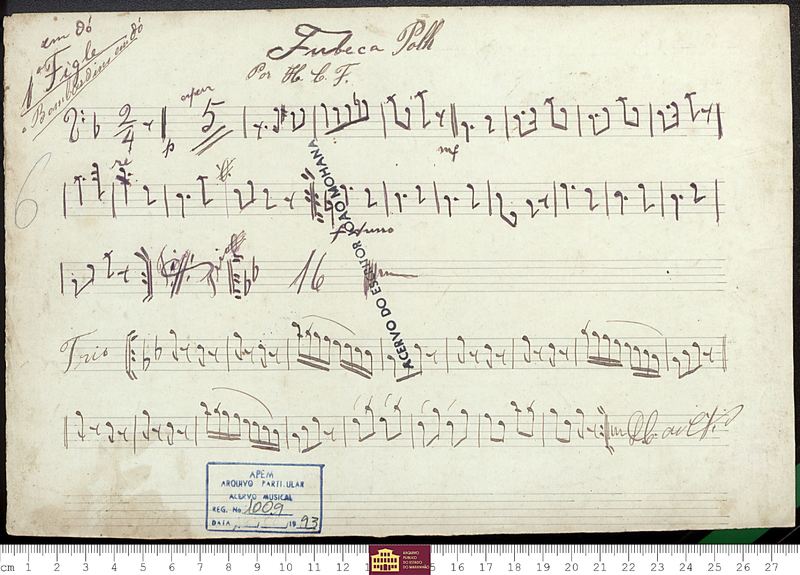 em dó
1º Figle
e Bombardino em dó
Fubeca Polk
Por H. C. F.
2
4
5
p
mf
6
16
Trio
ACERVO DO ESCRITOR JOÃO MOHANA
APEM
ARQUIVO PARTICULAR
ACERVO MUSICAL
REG. No 1009
DATA / / 19 93
cm 1 2 3 4 5 6 7 8 9 10 11 12 13 14 15 16 17 18 19 20 21 22 23 24 25 26 27
ARQUIVO
PÚBLICO
DO ESTADO
DO MARANHÃO